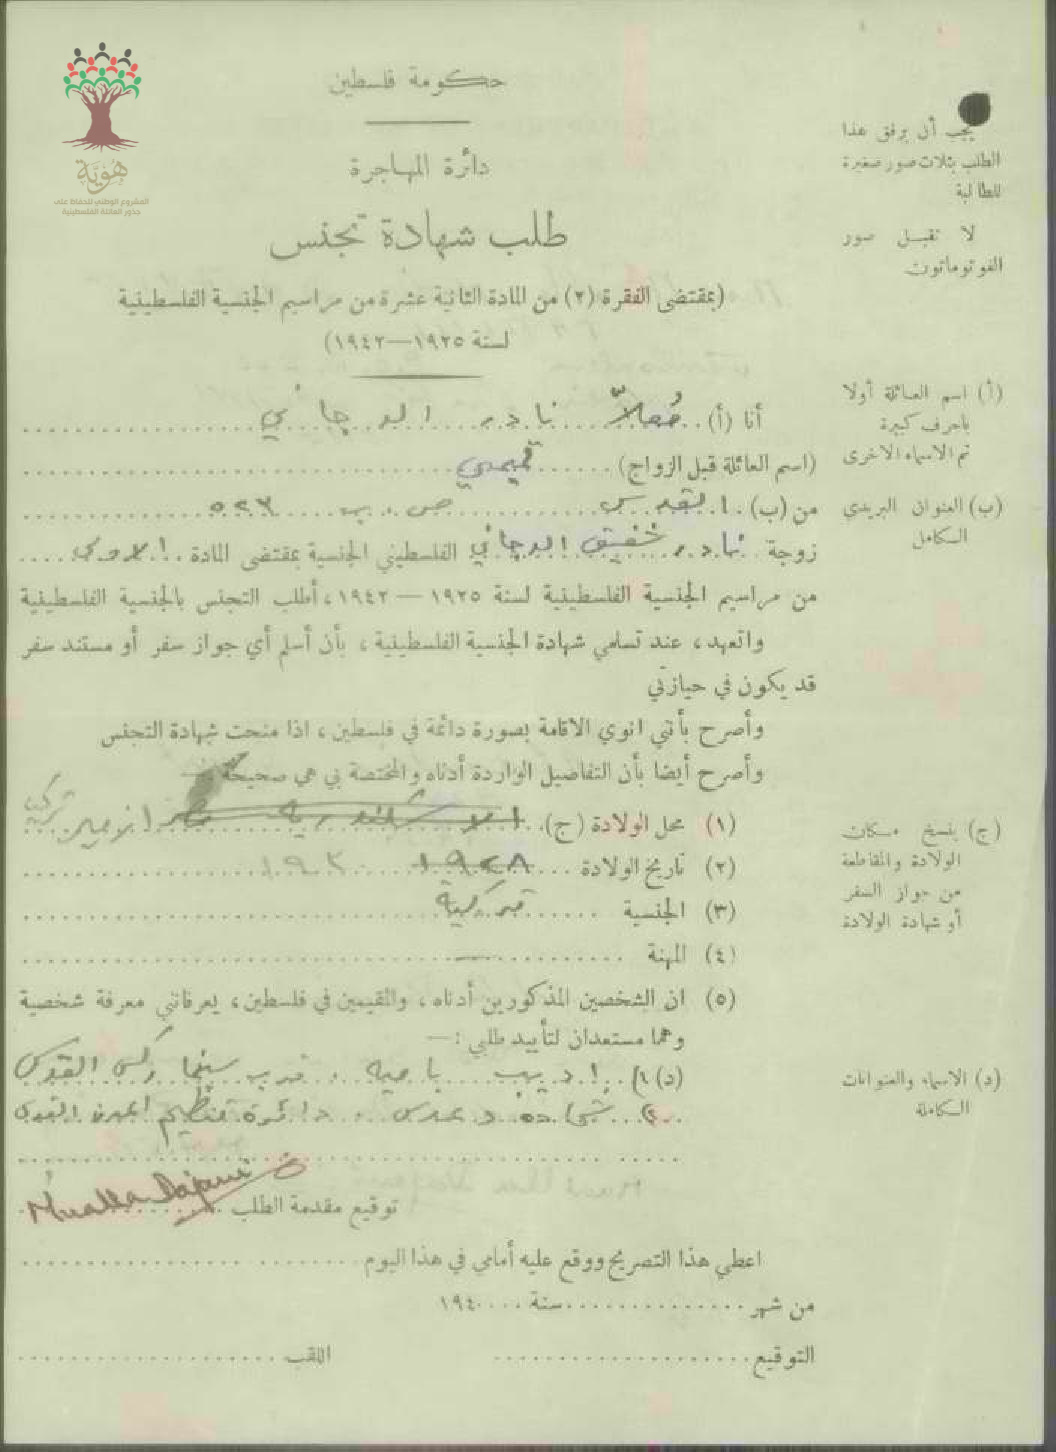 هوية
المشروع الوطني للحفاظ على
جذور العائلة الفلسطينية
حكومة فلسطين
دائرة المهاجرة
طلب شهادة تجنس
(بمقتضى الفقرة (٢) من المادة الثانية عشرة من مراسيم الجنسية الفلسطينية
لسنة ١٩٢٥—١٩٤٢)
يجب أن يرفق هذا
الطلب بثلاث صور صغيرة
للطالبة
لا تقبل صور
الفوتوماتون
(أ) اسم العائلة أولا
باحرف كبيرة
ثم الاسماء الاخرى
أنا (أ) مُعلاّ نادر الدجاني
(اسم العائلة قبل الزواج)
(ب) العنوان البريدي
الكامل
من (ب) القدس ص.ب ٥٢٣
زوجة نادر شفيق الدجاني الفلسطيني الجنسية بمقتضى المادة الاولى
من مراسيم الجنسية الفلسطينية لسنة ١٩٢٥ — ١٩٤٢، أطلب التجنس بالجنسية الفلسطينية
واتعهد، عند تسلمي شهادة الجنسية الفلسطينية، بأن أسلم أي جواز سفر أو مستند سفر
قد يكون في حيازتي
وأصرح بأنني انوي الاقامة بصورة دائمة في فلسطين، اذا منحت شهادة التجنس
وأصرح أيضا بأن التفاصيل الواردة أدناه والمختصة بي هي صحيحة
(١) محل الولادة (ج) الاسكندرية مصر ازمير تركيا
(٢) تاريخ الولادة ١٩٢٨ ١٩٢٠
(٣) الجنسية تركية
(٤) المهنة —
(ج) ينسخ مكان
الولادة والمقاطعة
من جواز السفر
أو شهادة الولادة
(٥) ان الشخصين المذكورين أدناه، والمقيمين في فلسطين، يعرفانني معرفة شخصية
وهما مستعدان لتأييد طلبي :—
(د) الاسماء والعنوانات
الكاملة
(د) ١) اديب باميه، قرب سينما ركس القدس
٢) شحاده، دائرة تنظيم المدن القدس
Mualla Dajani
توقيع مقدمة الطلب
اعطي هذا التصريح ووقع عليه أمامي في هذا اليوم
من شهر سنة ١٩٤
التوقيع اللقب